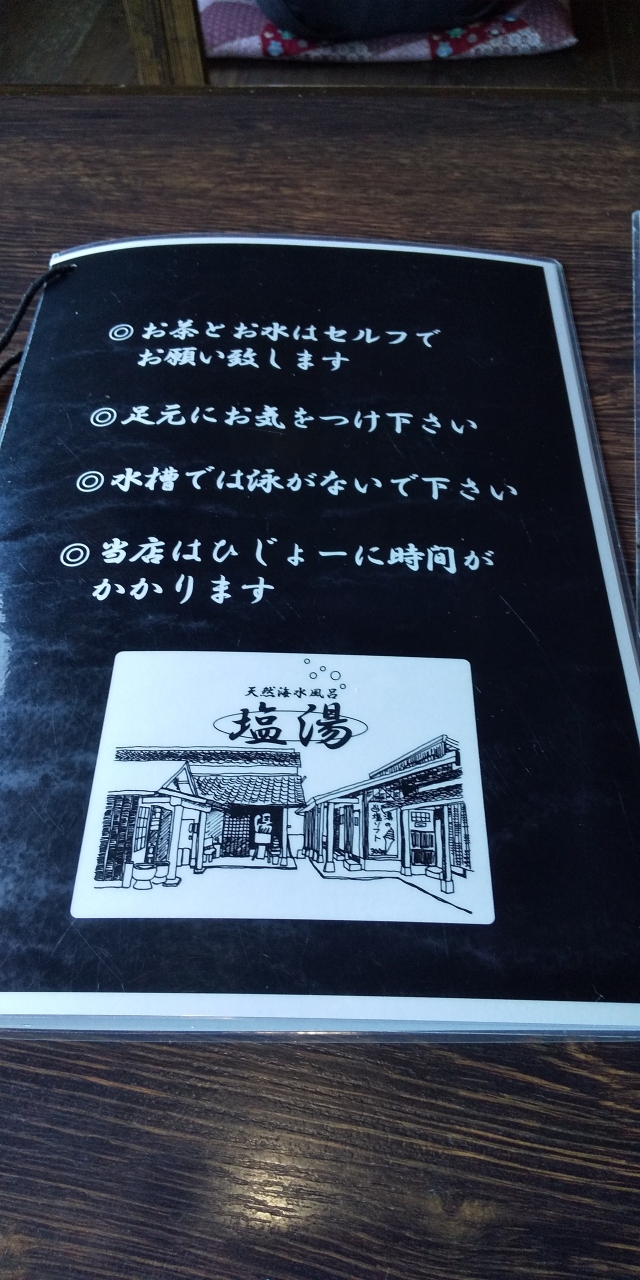 ◎お茶とお水はセルフで
お願い致します
◎足元にお気をつけ下さい
◎水槽では泳がないで下さい
◎当店はひじょーに時間が
かかります
天然海水風呂
塩湯
湯